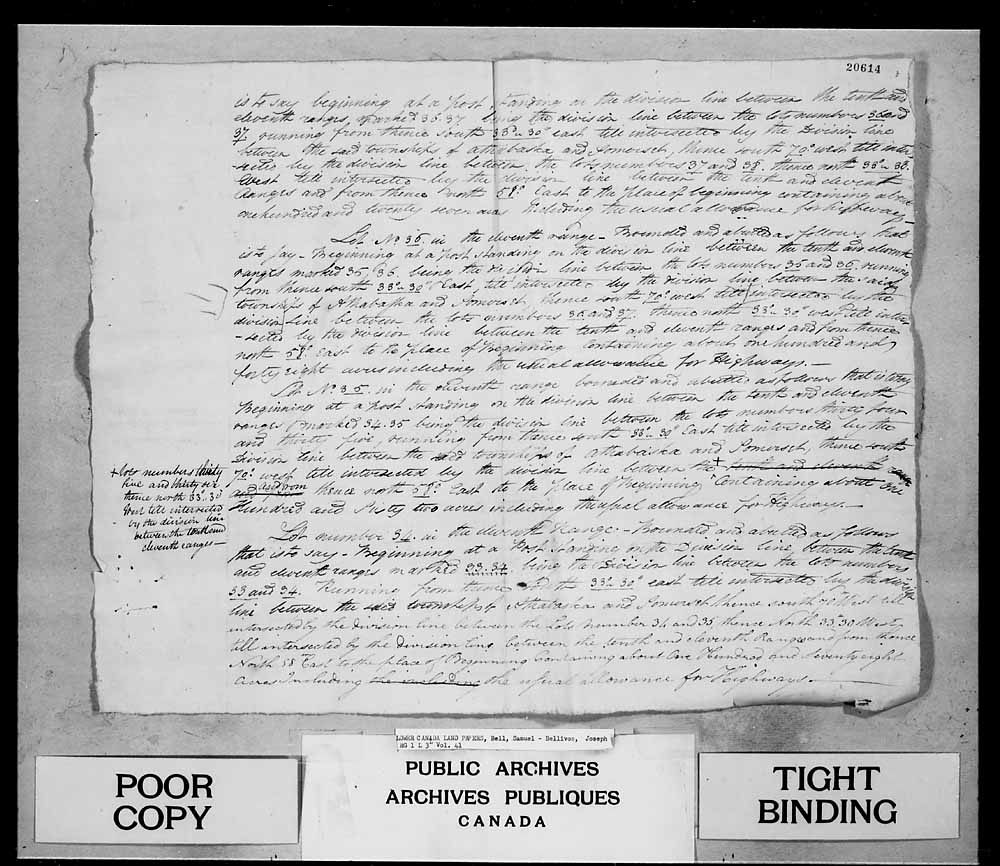 20614
is to say beginning at a post standing on the division line between the tenth and
eleventh ranges, marked 36.37 being the division line between the lots numbers 36 and
37, running from thence South 33°.. 30' east till intersected by the Division line
between the said townships of Athabaska and Somerset, thence south 70° west till inter-
sected by the division line between the lots numbers 37 and 38. thence north 33°.. 30.
West till intersected by the division line between the tenth and eleventh
Ranges and from thence North 58° East to the place of beginning containing about
one hundred and twenty seven acres including the usual allowance for highways—
Lot No 36. in the eleventh range - Bounded and abutted as follows that
is to say - Beginning at a post standing on the division line between the tenth and eleventh
ranges marked 35.36. being the division line between the lots numbers 35 and 36, running
from thence south 33°.. 30' East, till intersected by the division line between the said
townships of Athabaska and Somerset, thence south 70° west till intersected by the
division Line between the lots numbers 36 and 37. thence north 33°.. 30' west till inter
-sected by the division line between the tenth and eleventh ranges and from thence
north 58° East to the place of Beginning Containing about one hundred and
forty eight acres including the usual allowance for Highways.—
Lot No. 35. in the eleventh range bounded and abutted as follows that is to say
Beginning at a post standing on the division line between the tenth and eleventh
ranges marked 34.35 being the division line between the lots numbers thirty four
and thirty five running from thence south 33°.. 30' East till intersected by the
Division line between the said townships of Athabaska and Somerset, thence south
70° west till intersected by the division line between the + tenth and eleventh ranges
and from thence north 58° East to the place of beginning Containing about one
Hundred and Sixty two acres including the usual allowance for Highways.—
+ lots numbers thirty
five and thirty six
thence north 33°.30'
West till intersected
by the division line
between the tenth and
eleventh ranges—
Lot number 34. in the eleventh Range - Bounded, and abutted as follows
that is to say - Beginning at a Post standing on the Division Line between the tenth
and eleventh ranges marked 33.34. being the Division line between the lots numbers
33 and 34. Running from thence South 33°.. 30' east till intersected by the division
line between the said townships of Athabaska and Somerset, thence south 70 West till
intersected by the division line between the Lots Number 34 and 35 thence North 33.30 West
till intersected by the Division Line between the tenth and eleventh Ranges and from thence
North 58 East to the place of Beginning Containing about One Hundred and Seventy eight
Acres Including the including the usual allowance for Highways.—
LOWER CANADA LAND PAPERS, Bell, Samuel - Bellivos, Joseph
RG 1 L 3" Vol. 41
POOR
COPY
PUBLIC ARCHIVES
ARCHIVES PUBLIQUES
CANADA
TIGHT
BINDING